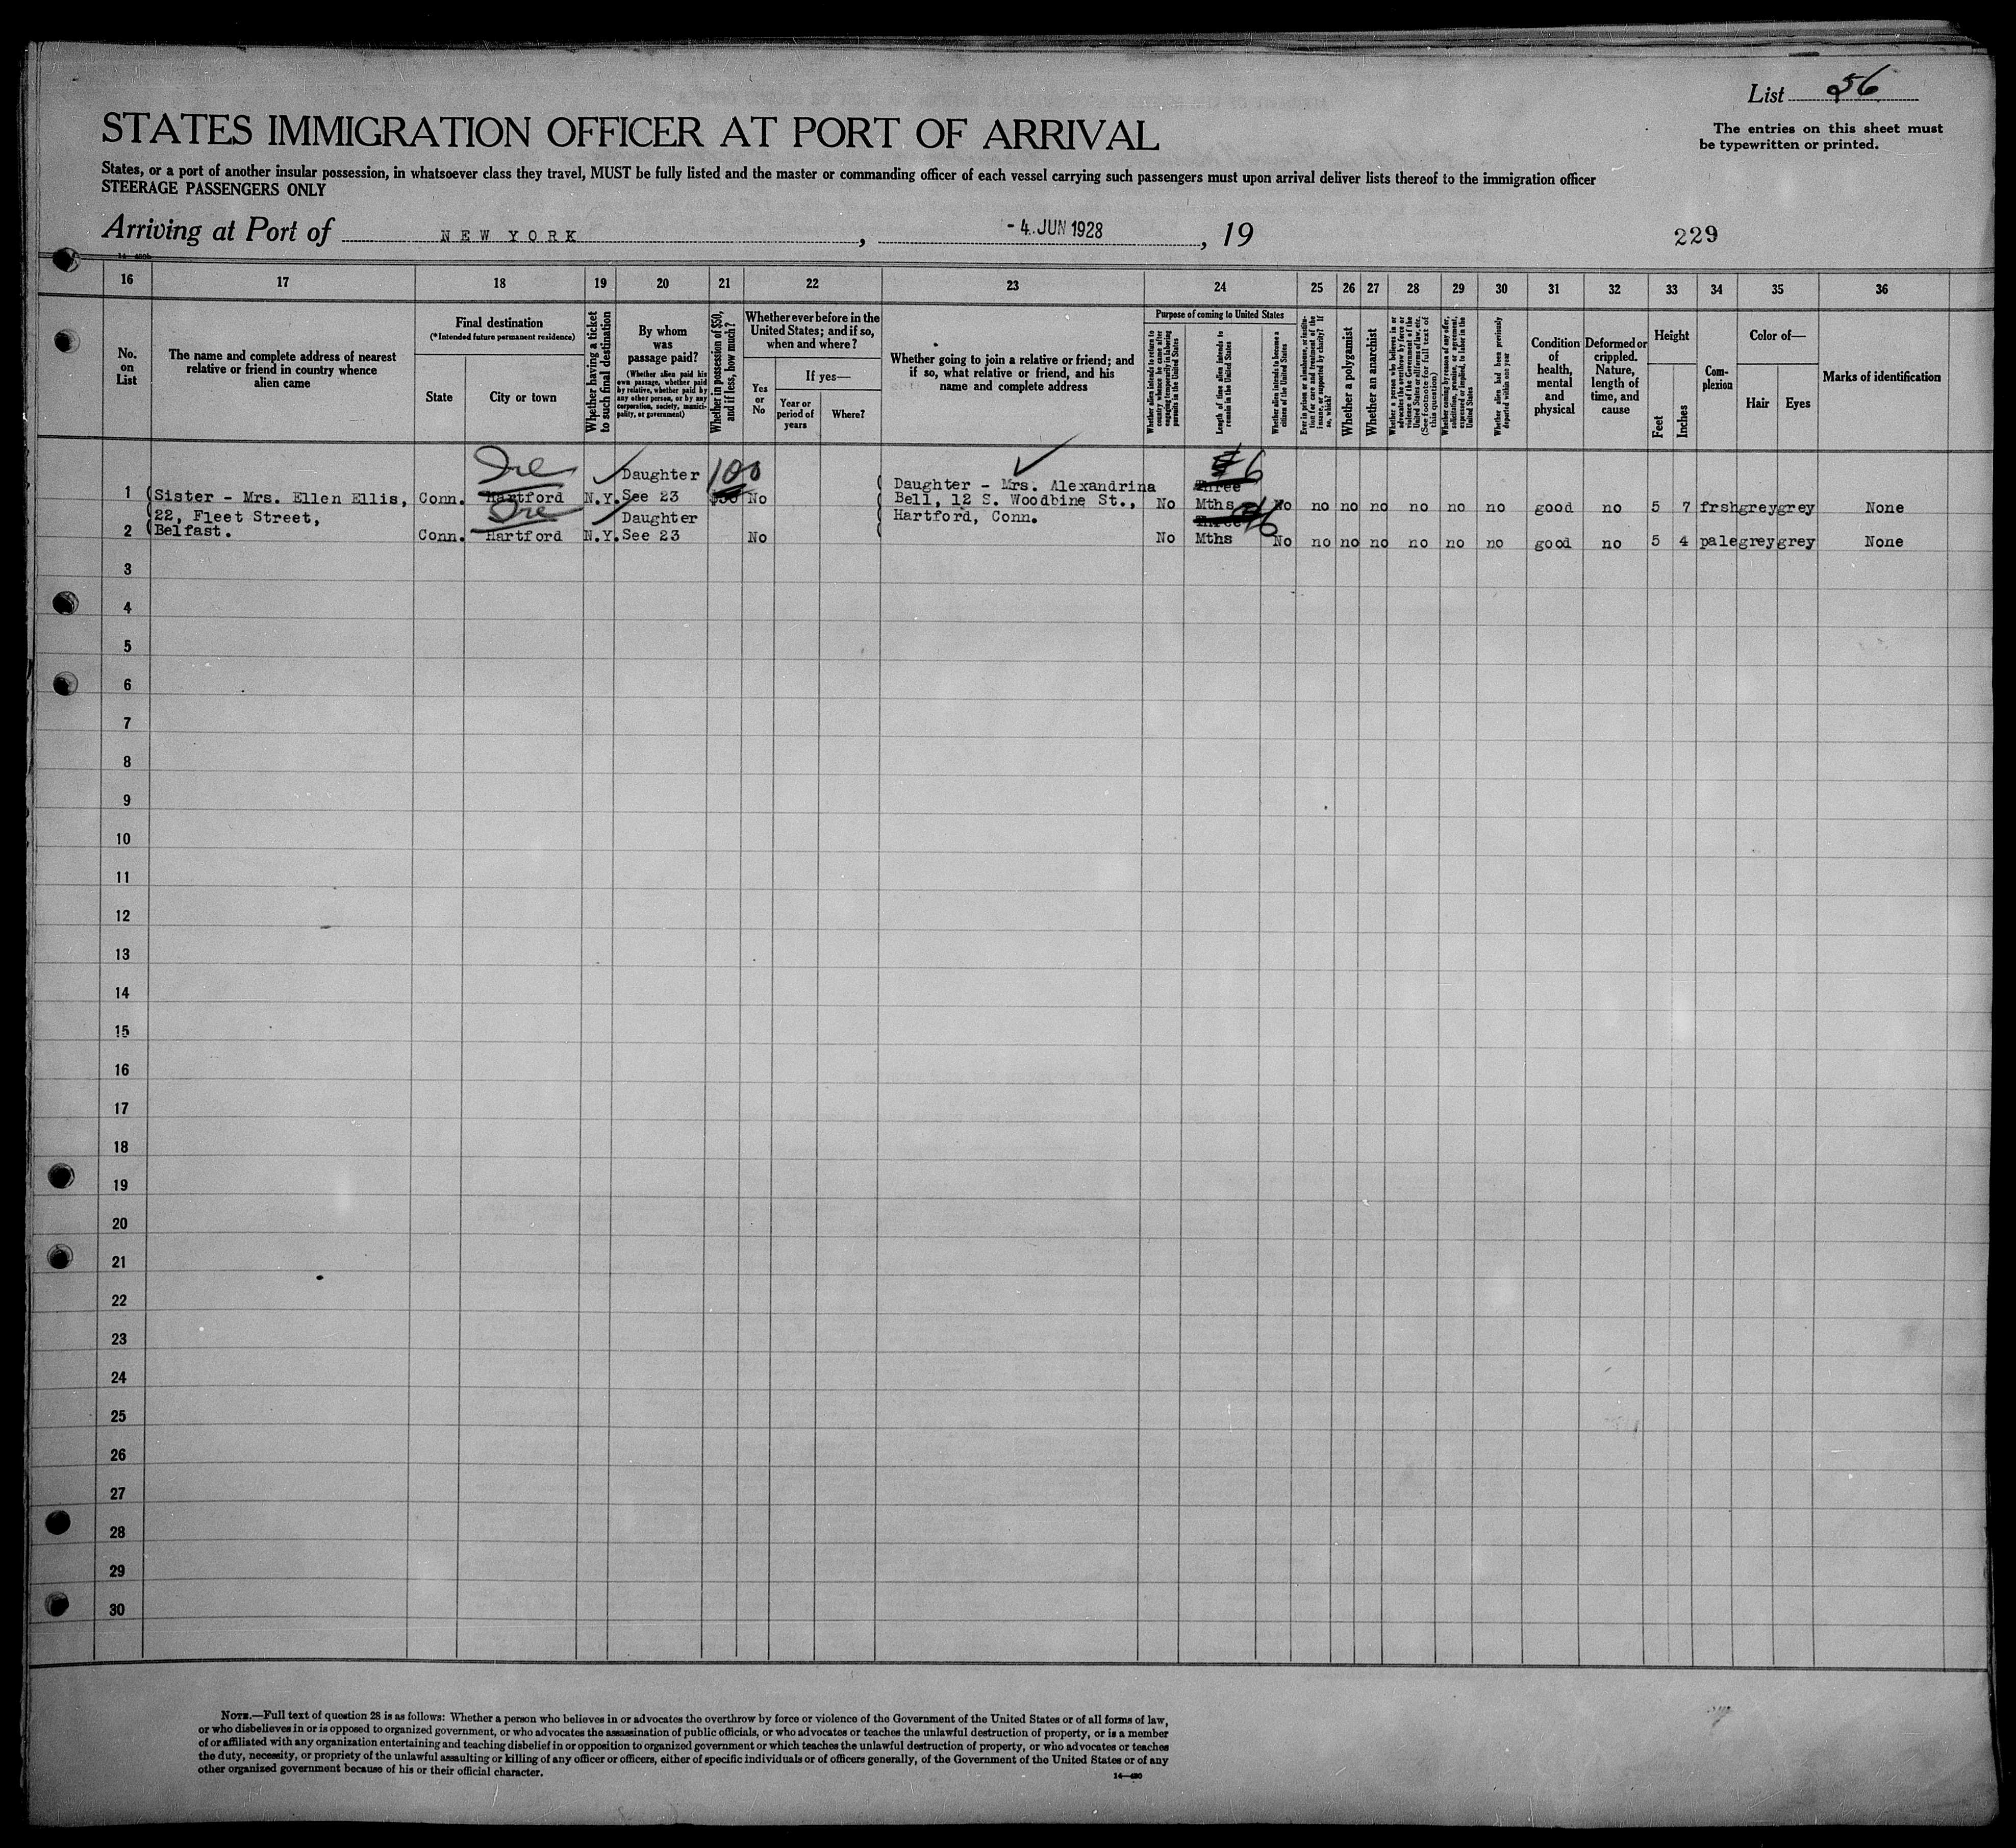 List 56
STATES IMMIGRATION OFFICER AT PORT OF ARRIVAL
The entries on this sheet must
be typewritten or printed.
States, or a port of another insular possession, in whatsoever class they travel, MUST be fully listed and the master or commanding officer of each vessel carrying such passengers must upon arrival deliver lists thereof to the immigration officer
STEERAGE PASSENGERS ONLY
Arriving at Port of NEW YORK, - 4 JUN 1928, 19
229
16 17 18 19 20 21 22 23 24 25 26 27 28 29 30 31 32 33 34 35 36
No. on List
The name and complete address of nearest
relative or friend in country whence
alien came
Final destination
(*Intended future permanent residence)
State
City or town
Whether having a ticket
to such final destination
By whom
was
passage paid?
(Whether alien paid his
own passage, whether paid
by relative, whether paid by
any other person, or by any
corporation, society, munici-
pality, or government)
Whether in possession of $50,
and if less, how much?
Whether ever before in the
United States; and if so,
when and where?
Yes
or
No
If yes—
Year or
period of
years
Where?
Whether going to join a relative or friend; and
if so, what relative or friend, and his
name and complete address
Purpose of coming to United States
Whether alien intends to return to
country whence he came after
engaging temporarily in laboring
pursuits in the United States
Length of time alien intends to
remain in the United States
Whether alien intends to become a
citizen of the United States
Ever in prison or almshouse, or institu-
tion for care and treatment of the
insane, or supported by charity? If
so, which?
Whether a polygamist
Whether an anarchist
Whether a person who believes in or
advocates the overthrow by force or
violence of the Government of the
United States or all forms of law, etc.
(See footnote for full text of
this question)
Whether coming by reason of any offer,
solicitation, promise, or agreement,
expressed or implied, to labor in the
United States
Whether alien had been previously
deported within one year
Condition
of
health,
mental
and
physical
Deformed or
crippled.
Nature,
length of
time, and
cause
Height
Feet
Inches
Com-
plexion
Color of—
Hair
Eyes
Marks of identification
Ire
100
6
1 Sister - Mrs. Ellen Ellis, Conn. Hartford N.Y. Daughter See 23 $50 No Daughter - Mrs. Alexandrina Three Mths No No no no no no no no good no 5 7 frsh grey grey None
22, Fleet Street,
Bell, 12 S. Woodbine St.,
Hartford, Conn.
Ire
6
2 Belfast. Conn. Hartford N.Y. Daughter See 23 No No Three Mths No no no no no no no good no 5 4 pale grey grey None
3
4
5
6
7
8
9
10
11
12
13
14
15
16
17
18
19
20
21
22
23
24
25
26
27
28
29
30
NOTE.—Full text of question 28 is as follows: Whether a person who believes in or advocates the overthrow by force or violence of the Government of the United States or of all forms of law,
or who disbelieves in or is opposed to organized government, or who advocates the assassination of public officials, or who advocates or teaches the unlawful destruction of property, or is a member
of or affiliated with any organization entertaining and teaching disbelief in or opposition to organized government or which teaches the unlawful destruction of property, or who advocates or teaches
the duty, necessity, or propriety of the unlawful assaulting or killing of any officer or officers, either of specific individuals or of officers generally, of the Government of the United States or of any
other organized government because of his or their official character.